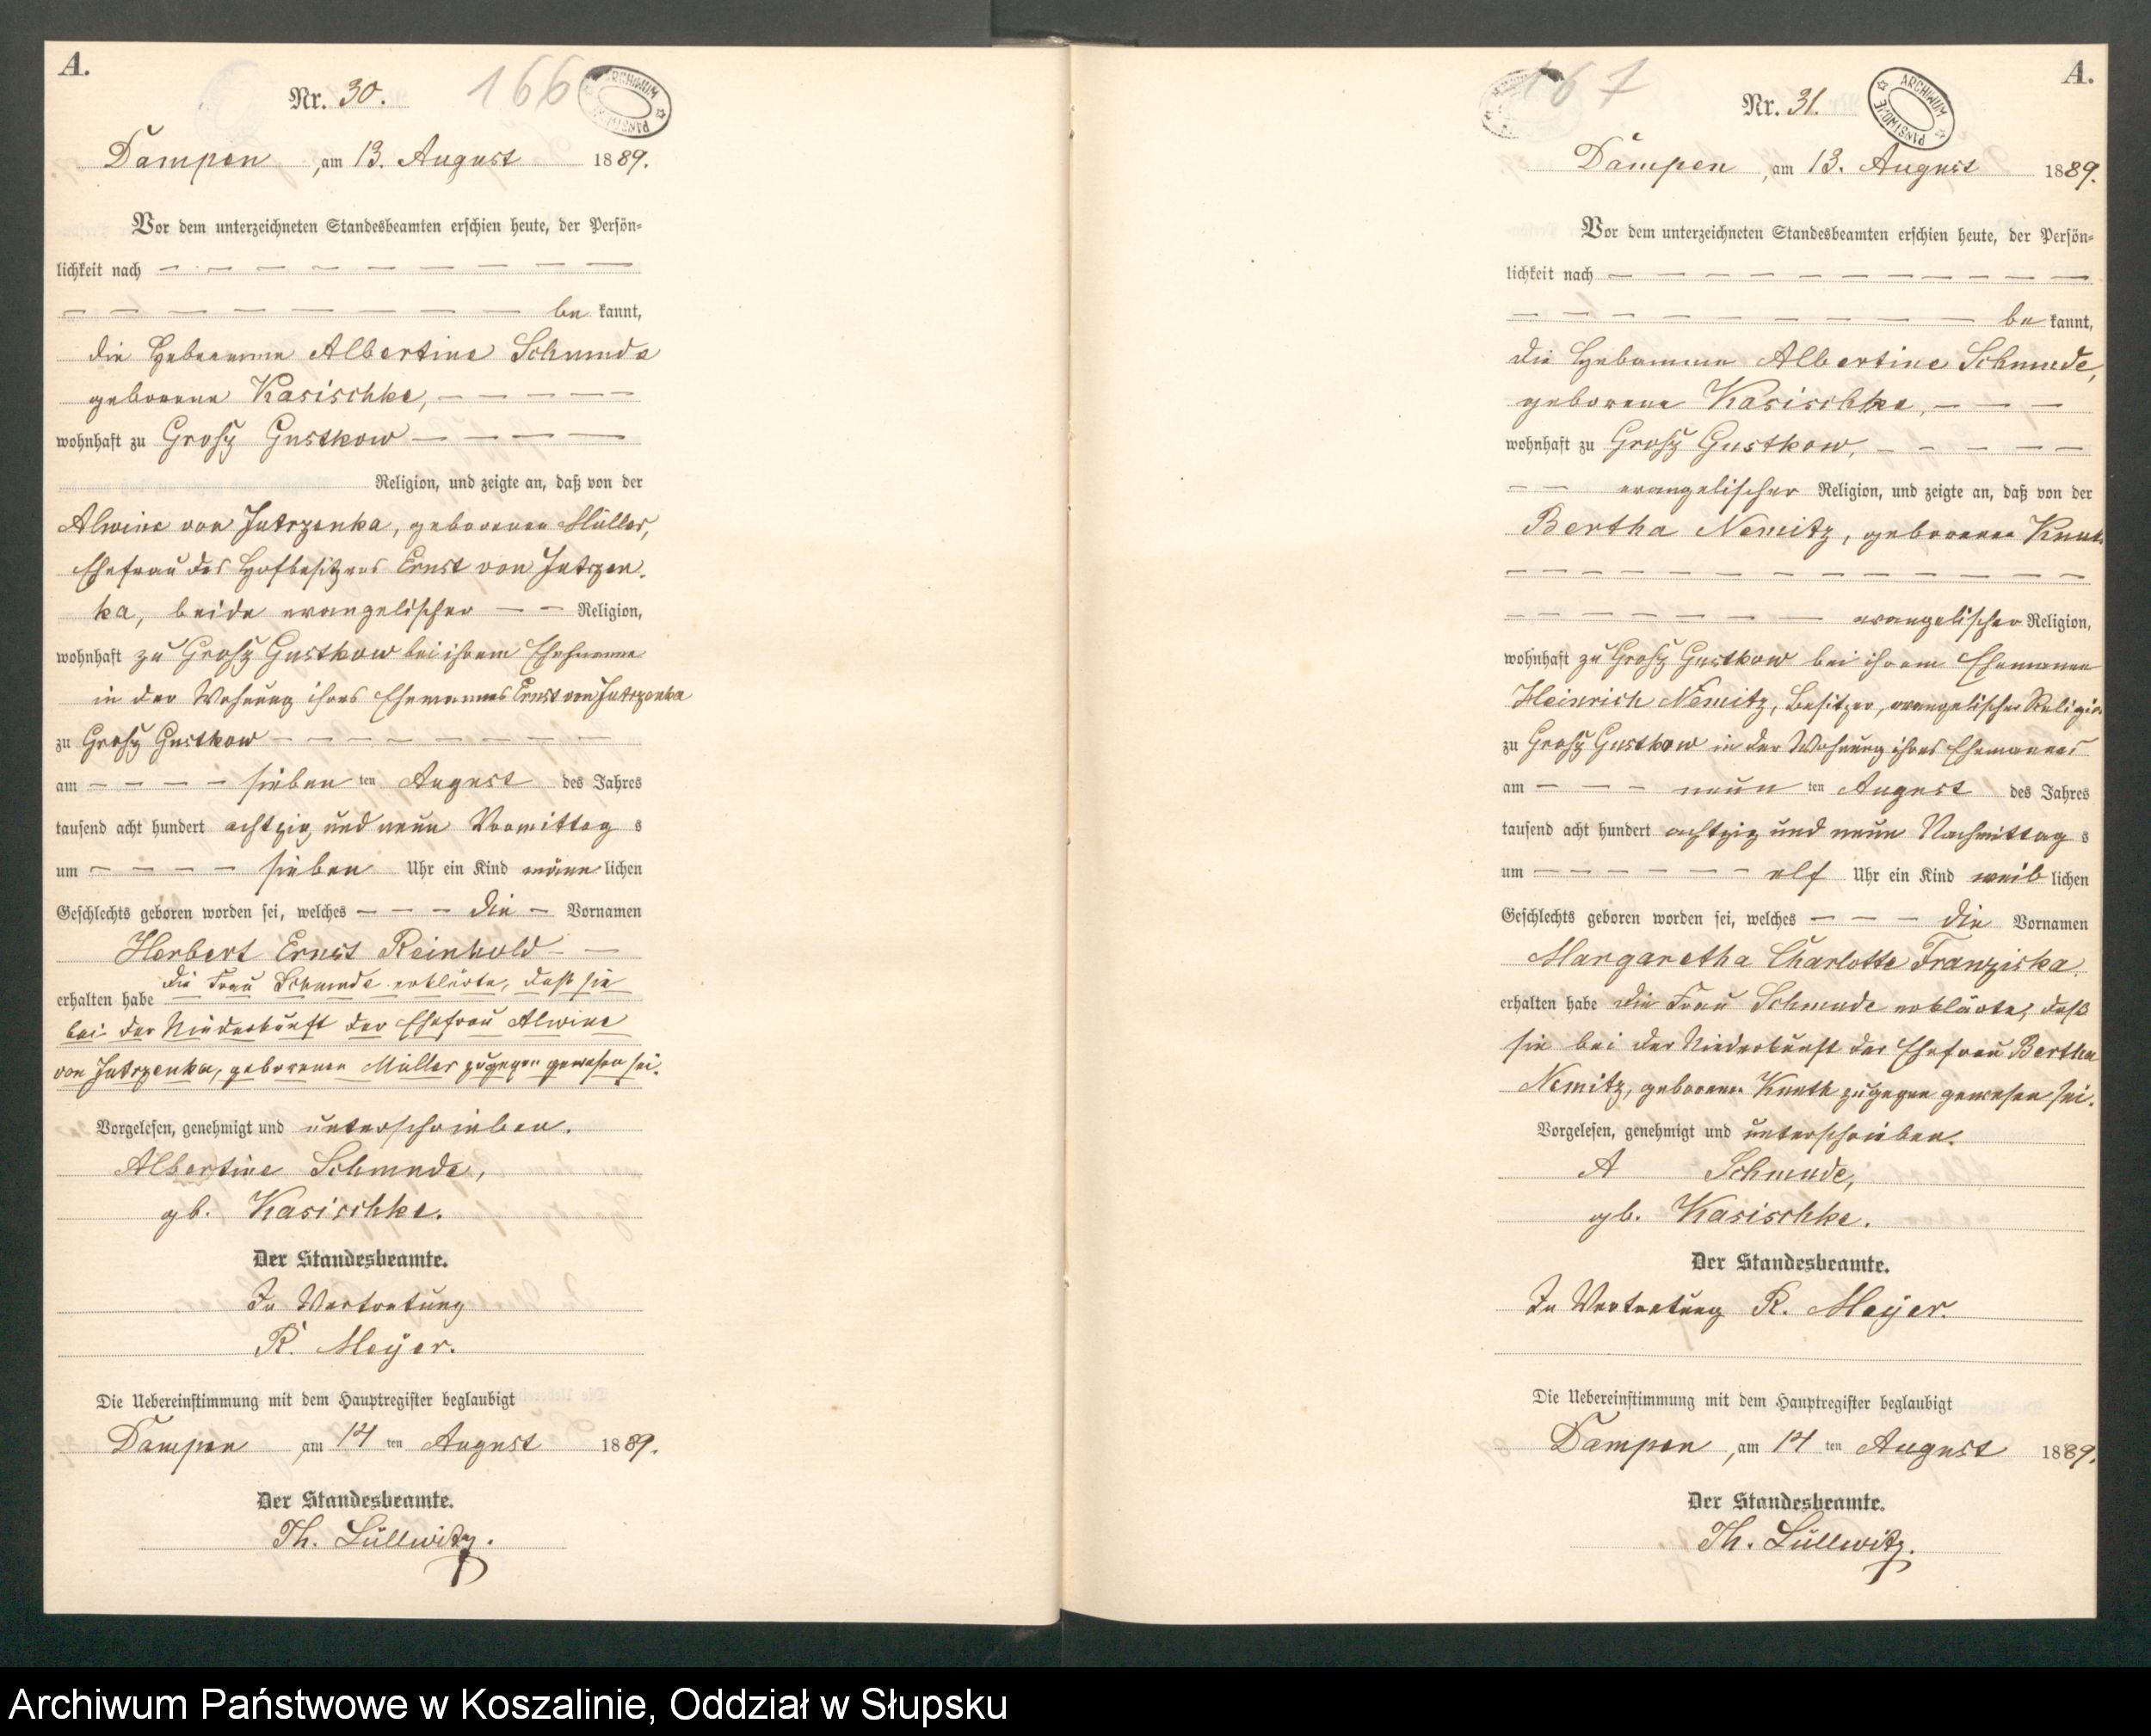 A.
Nr. 30.
166
ARCHIWUM PAŃSTWOWE
Dampen, am 13. August 1889.
Vor dem unterzeichneten Standesbeamten erschien heute, der Persön-
lichkeit nach — — — — — — — — —
— — — — — — — — — be kannt,
die Hebamme Albertine Schmude
geborene Kasischke, — — — — —
wohnhaft zu Groß Gustkow — — — —
Religion, und zeigte an, daß von der
Alwine von Jutrzenka, geborenen Müller,
Ehefrau des Hofbesitzers Ernst von Jutrzen-
ka, beide evangelischer — — Religion,
wohnhaft zu Groß Gustkow bei ihrem Ehemanne
in der Wohnung ihres Ehemannes Ernst von Jutrzenka
zu Groß Gustkow — — — — — — —
am — — — — sieben ten August des Jahres
tausend acht hundert achtzig und neun Vormittag s
um — — — — sieben Uhr ein Kind männ lichen
Geschlechts geboren worden sei, welches — — — die — Vornamen
Herbert Ernst Reinhold — —
erhalten habe die Frau Schmude erklärte, daß sie
bei der Niederkunft der Ehefrau Alwine
von Jutrzenka, geborenen Müller zugegen gewesen sei.
Vorgelesen, genehmigt und unterschrieben.
Albertine Schmude,
gb. Kasischke.
Der Standesbeamte.
In Vertretung
R. Meyer.
Die Uebereinstimmung mit dem Hauptregister beglaubigt
Dampen am 14 ten August 1889.
Der Standesbeamte.
Th. Lüllwitz.
A.
Nr. 31.
167
ARCHIWUM PAŃSTWOWE
Dampen, am 13. August 1889.
Vor dem unterzeichneten Standesbeamten erschien heute, der Persön-
lichkeit nach — — — — — — — — — —
— — — — — — — — — be kannt,
die Hebamme Albertine Schmude,
geborene Kasischke, — — —
wohnhaft zu Groß Gustkow, — — — — —
— — evangelischer Religion, und zeigte an, daß von der
Bertha Nemitz, geborenen Knuth
— — — — — — — — — — —
— — — — — — — evangelischer Religion,
wohnhaft zu Groß Gustkow bei ihrem Ehemanne
Heinrich Nemitz, Besitzer, evangelischer Religion
zu Groß Gustkow in der Wohnung ihres Ehemannes
am — — — neun ten August des Jahres
tausend acht hundert achtzig und neun Nachmittag s
um — — — — — — elf Uhr ein Kind weib lichen
Geschlechts geboren worden sei, welches — — — die Vornamen
Margaretha Charlotte Franziska
erhalten habe die Frau Schmude erklärte, daß
sie bei der Niederkunft der Ehefrau Bertha
Nemitz, geborenen Knuth zugegen gewesen sei.
Vorgelesen, genehmigt und unterschrieben.
A Schmude,
gb. Kasischke.
Der Standesbeamte.
In Vertretung R. Meyer.
Die Uebereinstimmung mit dem Hauptregister beglaubigt
Dampen, am 14 ten August 1889.
Der Standesbeamte.
Th. Lüllwitz.
Archiwum Państwowe w Koszalinie, Oddział w Słupsku